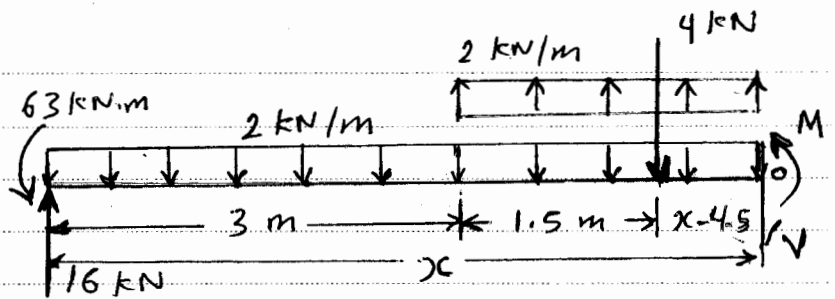 4 kN
2 kN/m
63 kN.m
2 kN/m
M
O
3 m
1.5 m
x-4.5
V
x
16 kN